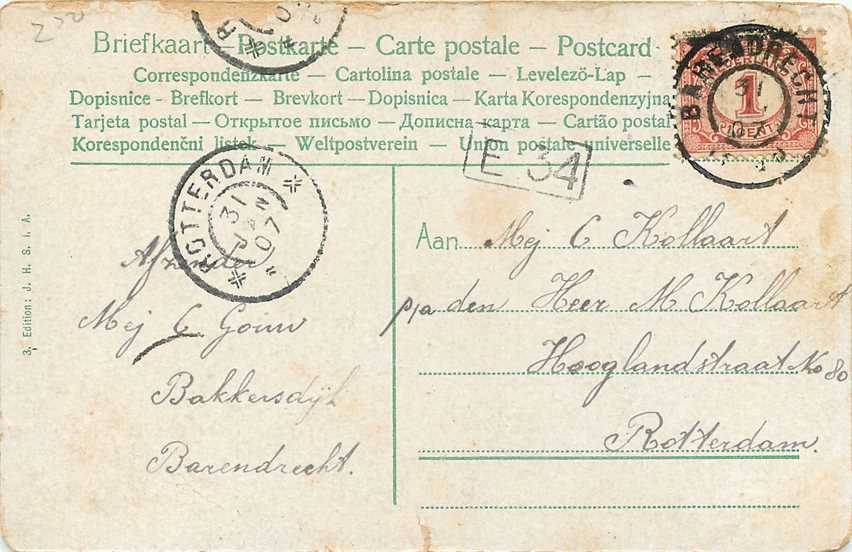 250
Briefkaart – Postkarte – Carte postale – Postcard
Correspondenzkarte – Cartolina postale – Levelező-Lap –
Dopisnice - Brefkort – Brevkort – Dopisnica – Karta Korespondenzyjna
Tarjeta postal – Открытое письмо – Дописна карта – Cartão postal
Korespondenční listek – Weltpostverein – Union postale universelle
BARENDRECHT
31
1
CENT
E 34
ROTTERDAM
31
07
Afzender
Mej C Gouw
Bakkersdijk
Barendrecht.
Aan Mej C Kollaart
p/a den Heer M Kollaart
Hooglandstraat No 80
Rotterdam.
3, Edition: J. H. S. i. A.